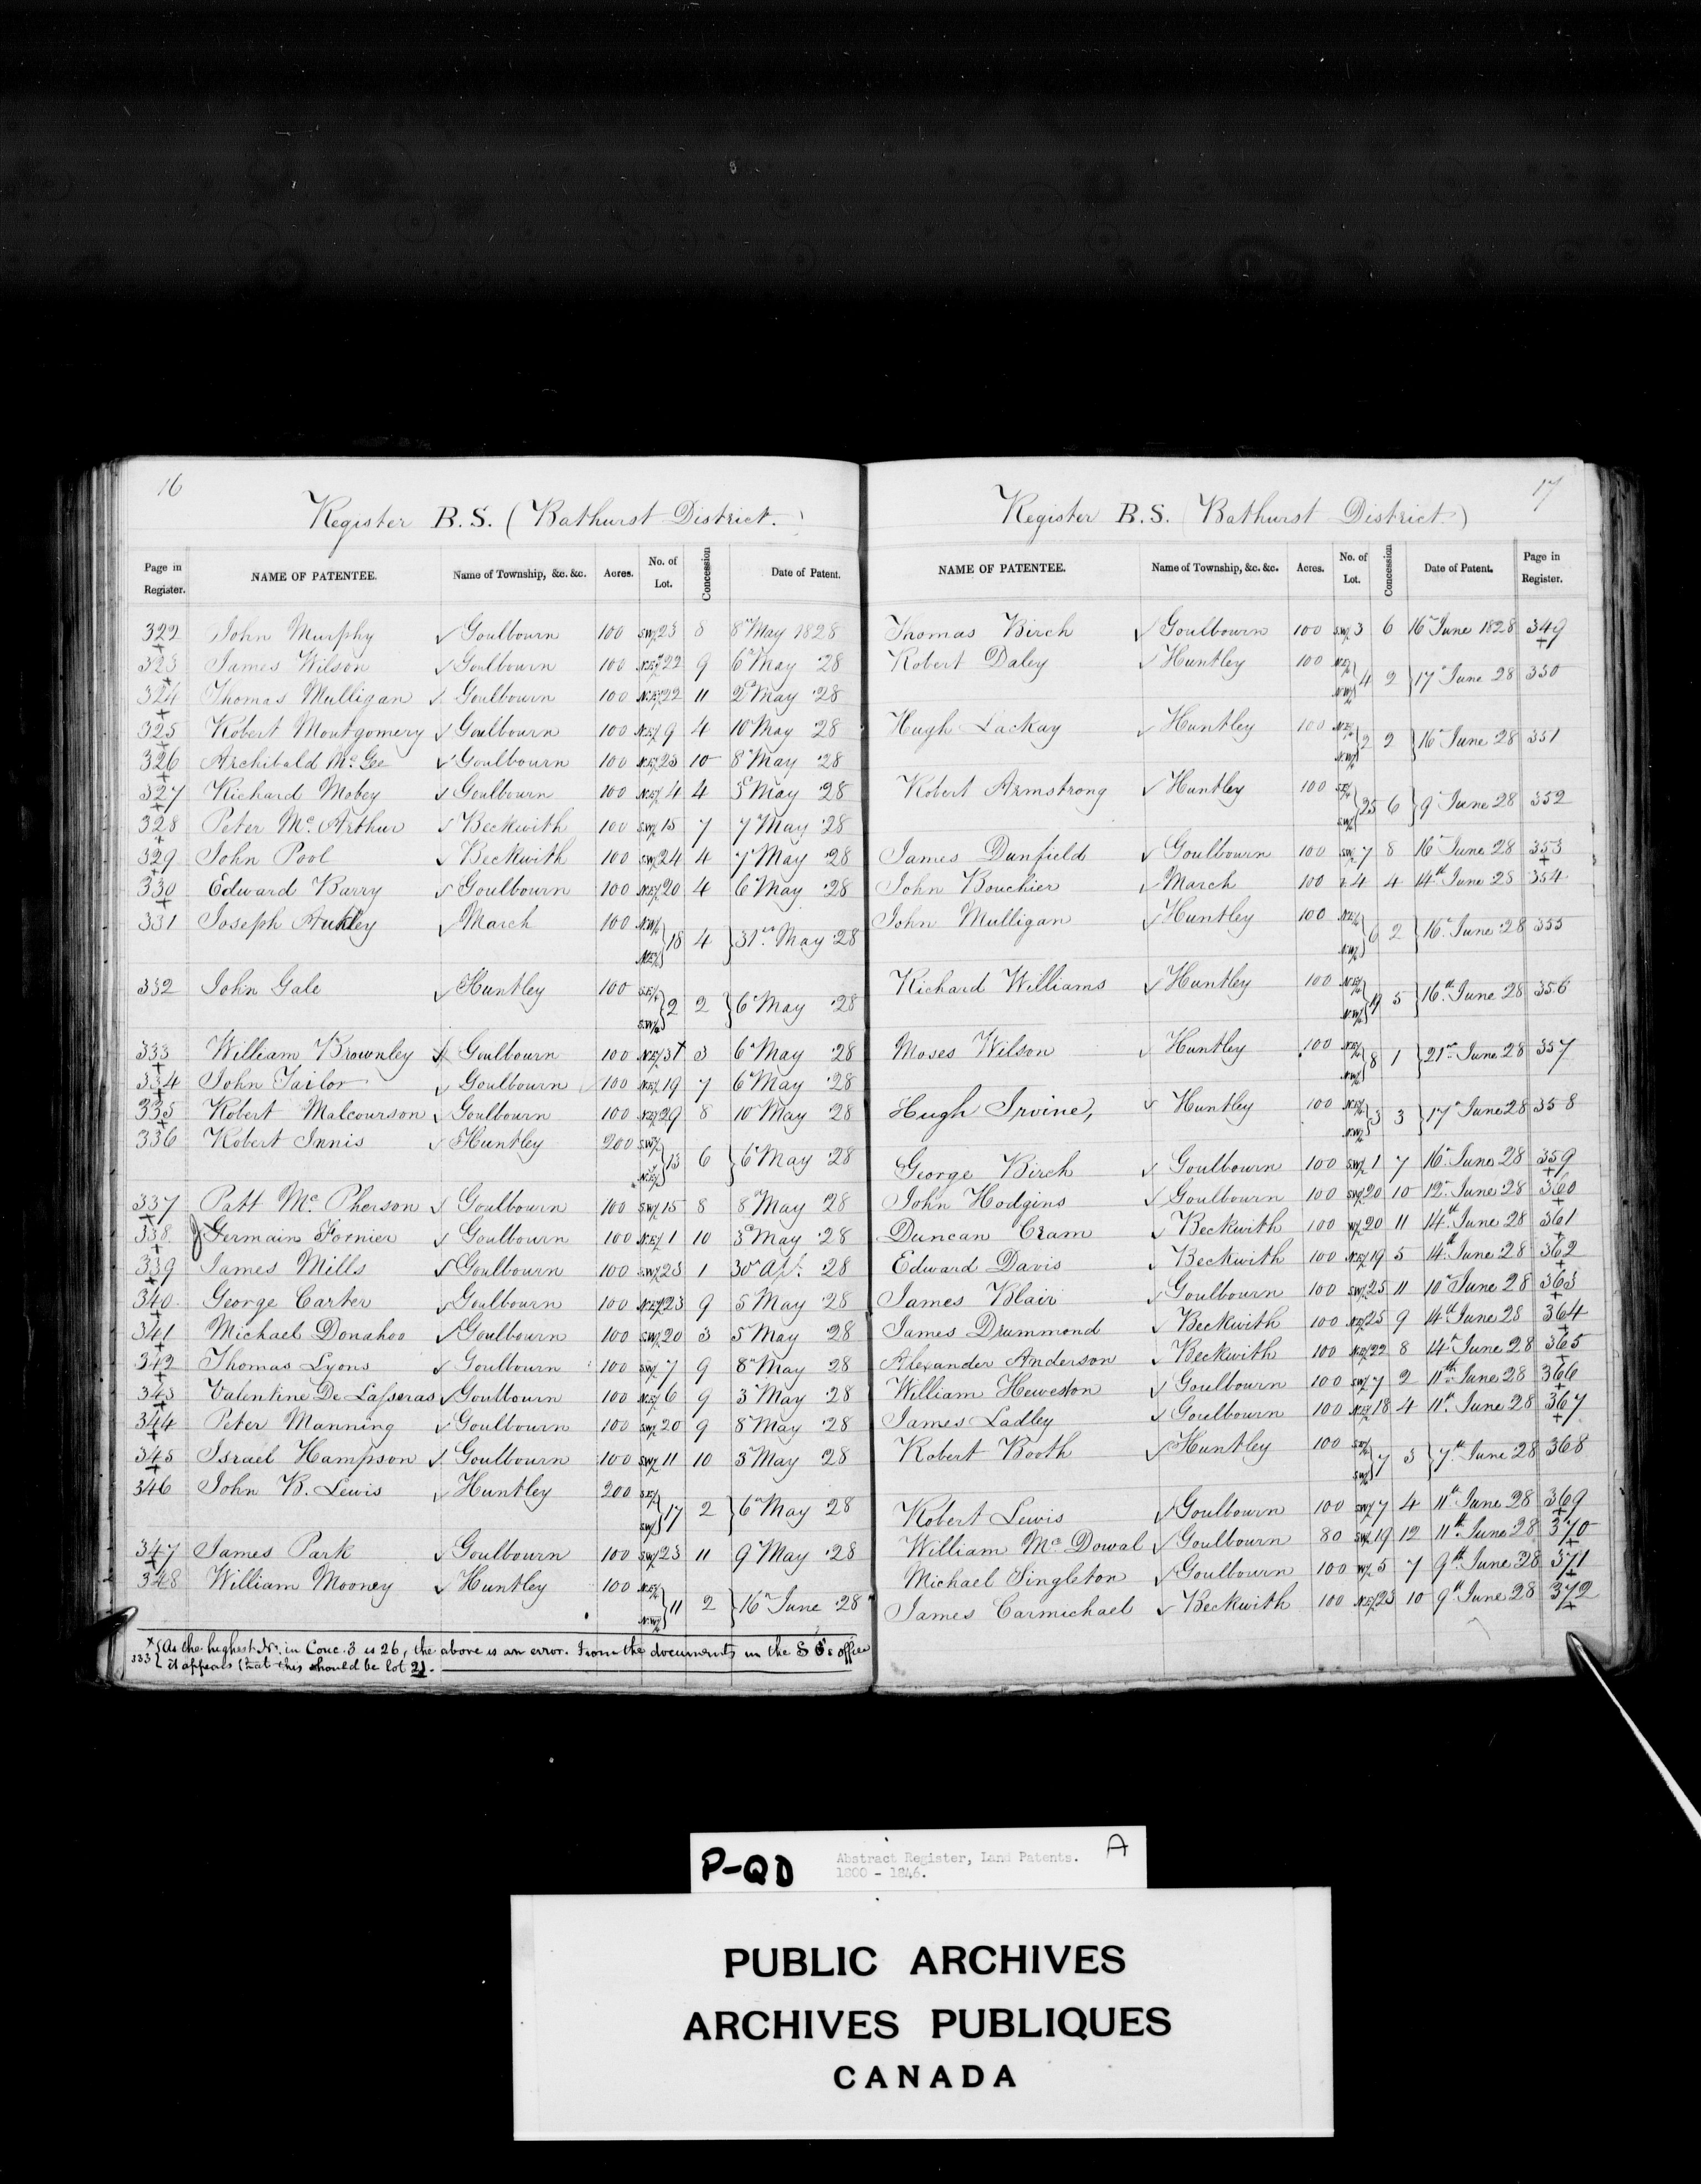 16
Register B.S. (Bathurst District.)
Page in Register. NAME OF PATENTEE. Name of Township, &c. &c. Acres. No. of Lot. Concession Date of Patent.
322 John Murphy ✓ Goulbourn 100 S.W½ 23 8 8th May 1828
323 James Wilson ✓ Goulbourn 100 N.E½ 22 9 6th May '28
324 Thomas Mulligan ✓ Goulbourn 100 N.E½ 22 11 2d May '28
325 Robert Montgomery ✓ Goulbourn 100 N.E½ 9 4 10th May '28
326 Archibald Mc Gee ✓ Goulbourn 100 N.E½ 23 10 8th May '28
327 Richard Mobey ✓ Goulbourn 100 N.E½ 4 4 May '28
328 Peter Mc Arthur ✓ Beckwith 100 S.W½ 15 7 7th May '28
329 John Pool ✓ Beckwith 100 S.W½ 24 4 7th May '28
330 Edward Barry ✓ Goulbourn 100 N.E½ 20 4 6th May '28
331 Joseph ✓ March 100 N.W¼ N.E¼ } 18 4 } 31st May '28
332 John Gale ✓ Huntley 100 S.E¼ S.W¼ } 2 2 } 6th May '28
333 William Brownley ✓ Goulbourn 100 N.E½ 31 x 3 6th May '28
334 John Tailor ✓ Goulbourn 100 N.E½ 19 7 6th May '28
335 Robert Malcourson ✓ Goulbourn 100 N.E½ 29 8 10th May '28
336 Robert Innis ✓ Huntley 200 S.W½ N.E½ } 13 6 } 6th May '28
337 Patt Mc Pherson ✓ Goulbourn 100 S.W½ 15 8 8th May '28
338 Germain Fornier ✓ Goulbourn 100 N.E½ 1 10 3d May '28
339 James Mills ✓ Goulbourn 100 S.W½ 23 1 30th Apl. '28
340 George Carter ✓ Goulbourn 100 N.E½ 23 9 5 May '28
341 Michael Donahoo ✓ Goulbourn 100 S.W½ 20 3 5th May '28
342 Thomas Lyons ✓ Goulbourn 100 S.W½ 7 9 8th May '28
343 Valentine De Lasseras ✓ Goulbourn 100 N.E½ 6 9 3d May '28
344 Peter Manning ✓ Goulbourn 100 S.W½ 20 9 8th May '28
345 Israel Hampson ✓ Goulbourn 100 S.W½ 11 10 3d May '28
346 John B. Lewis ✓ Huntley 200 S.E½ S.W½ } 17 2 } 6th May '28
347 James Park ✓ Goulbourn 100 S.W½ 23 11 9th May '28
348 William Mooney ✓ Huntley 100 N.E¼ N.W¼ } 11 2 } 16th June '28
x 333 { As the highest No. in Conc. 3 is 26, the above is an error. From the documents in the S G's office
it appears that this should be lot 21.
17
Register B.S. (Bathurst District)
NAME OF PATENTEE. Name of Township, &c. &c. Acres. No. of Lot. Concession Date of Patent. Page in Register.
Thomas Birch ✓ Goulbourn 100 S.W½ 3 6 16th June 1828 349
Robert Daley ✓ Huntley 100 N.E¼ N.W¼ } 4 2 } 17th June 28 350
Hugh Lackay ✓ Huntley 100 N.E¼ N.W¼ } 2 2 } 16th June 28 351
Robert Armstrong ✓ Huntley 100 S.E¼ S.W¼ } 25 6 } 9th June 28 352
James Dunfield ✓ Goulbourn 100 S.W½ 7 8 16th June 28 353
John Bouchier ✓ March 100 4 4 14th June 28 354
John Mulligan ✓ Huntley 100 N.E¼ N.W¼ } 6 2 } 16th June 28 355
Richard Williams ✓ Huntley 100 N.E¼ N.W¼ } 19 5 } 16th June 28 356
Moses Wilson ✓ Huntley 100 N.E¼ N.W¼ } 8 1 } 21st June 28 357
Hugh Irvine, ✓ Huntley 100 N.E¼ N.W¼ } 3 3 } 17th June 28 358
George Birch ✓ Goulbourn 100 S.W½ 1 7 16th June 28 359
John Hodgins ✓ Goulbourn 100 S.W½ 20 10 12th June 28 360
Duncan Cram ✓ Beckwith 100 W½ 20 11 14th June 28 361
Edward Davis ✓ Beckwith 100 N.E½ 19 5 14th June 28 362
James Blair ✓ Goulbourn 100 S.W½ 25 11 10th June 28 363
James Drummond ✓ Beckwith 100 N.E½ 25 9 14th June 28 364
Alexander Anderson ✓ Beckwith 100 N.E½ 22 8 14th June 28 365
William Heweston ✓ Goulbourn 100 S.W½ 7 2 11th June 28 366
James Ladley ✓ Goulbourn 100 N.E½ 18 4 11th June 28 367
Robert Booth ✓ Huntley 100 S.E¼ S.W¼ } 7 3 } 7th June 28 368
Robert Lewis ✓ Goulbourn 100 S.W½ 7 4 11th June 28 369
William Mc Dowal ✓ Goulbourn 80 S.W½ 19 12 11th June 28 370
Michael Singleton ✓ Goulbourn 100 W½ 5 7 9th June 28 371
James Carmichael ✓ Beckwith 100 N.E½ 23 10 9th June 28 372
P-QD Abstract Register, Land Patents. A
1800 - 1846.
PUBLIC ARCHIVES
ARCHIVES PUBLIQUES
CANADA